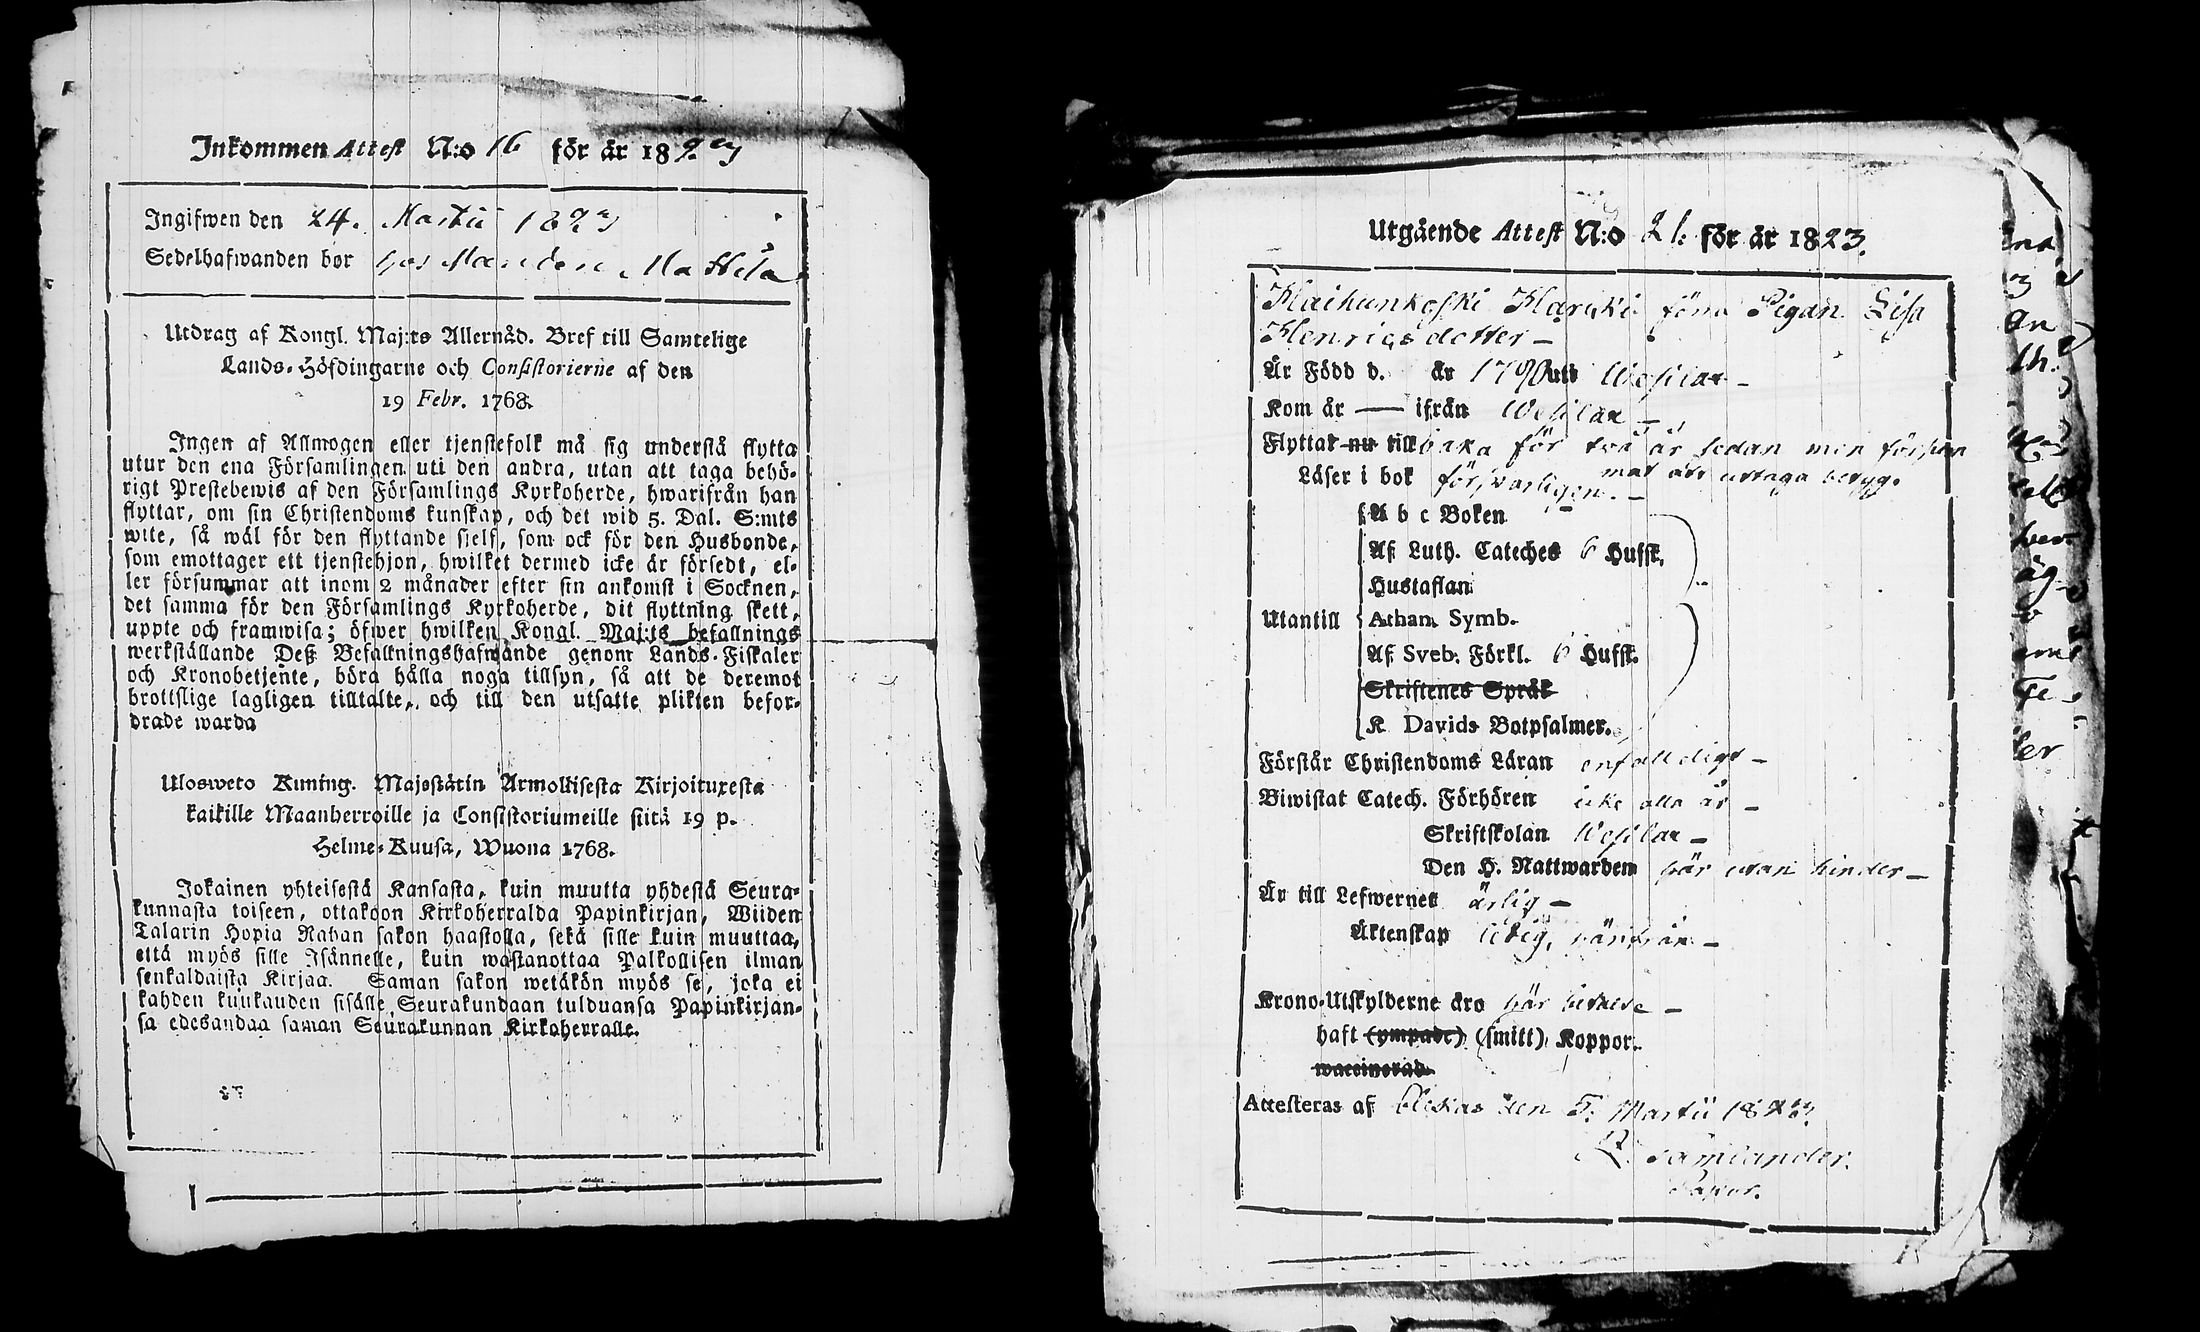 Inkommen Attest N:o 16 för år 1823
Ingifwen den 24. Martii 1823
Sedelhafwanden bor hos Manden Mattila
Utdrag af Kongl. Maj:ts Allernåd. Bref till Samtelige
Lands-Höfdingarne och Consistorierne af den
19 Febr. 1768.
Ingen af Allmogen eller tjenstefolk må sig understå flytta
utur den ena Församlingen uti den andra, utan att taga behö-
rigt Prestebewis af den Församlings Kyrkoherde, hwarifrån han
flyttar, om sin Christendoms kunskap, och det wid 5. Dal. S:mts
wite, så wäl för den flyttande sjelf, som ock för den Husbonde,
som emottager ett tjenstehjon, hwilket dermed icke är försedt, el-
ler försummar att inom 2 månader efter sin ankomst i Socknen,
det samma för den Församlings Kyrkoherde, dit flyttning skett,
uppte och framwisa; öfwer hwilken Kongl. Maj:ts befallnings
werkställande Deß Befallningshafwande genom Lands-Fiskaler
och Kronobetjente, böra hålla noga tillsyn, så att de deremot
brottslige lagligen tilltalte, och till den utsatte plikten befor-
drade warda
Ulosweto Kuning. Majestätin Armollisesta Kirjoituxesta
kaikille Maanherroille ja Consistoriumeille siitä 19 p.
Helme-Kuusa, Wuona 1768.
Jokainen yhteisestä Kansasta, kuin muutta yhdestä Seura-
kunnasta toiseen, ottakoon Kirkoherralda Papinkirjan, Wiiden
Talarin Hopia Rahan sakon haastolla, sekä sille kuin muuttaa,
että myös sille Isännelle, kuin wastanottaa Palkollisen ilman
senkaldaista Kirjaa. Saman sakon wetäkön myös se, joka ei
kahden kuukauden sisälle Seurakundaan tulduansa Papinkirjan-
sa edesandaa saman Seurakunnan Kirkoherralle.
Utgående Attest N:o 21. för år 1823.
Pigan Lisa
Henricsdotter
Är Född d. år 1790 uti Wesilax
Kom år — ifrån Wesilax
Flyttat nu till för två år sedan men försum
mat att uttaga betyg.
Läser i bok försvarligen.
A b c Boken
Af Luth. Cateches 6 Hufst.
Hustaflan
Utantill Athan. Symb.
Af Sveb. Förkl. 6 Hufst.
Skriftenes Språk
K Davids Botpsalmer.
Förstår Christendoms Läran enfalldigt
Biwistat Catech. Förhören icke alla år
Skriftskolan Wesilax
Den H. Nattwarden här utan hinder
Är till Lefwernet ärlig
Äktenskap ledig, härifrån
Krono-Utskylderne äro här betalte
haft (ympade) (smitt) Koppor.
waccinerad
Attesteras af den 5. Martii 1823.
Pastor.